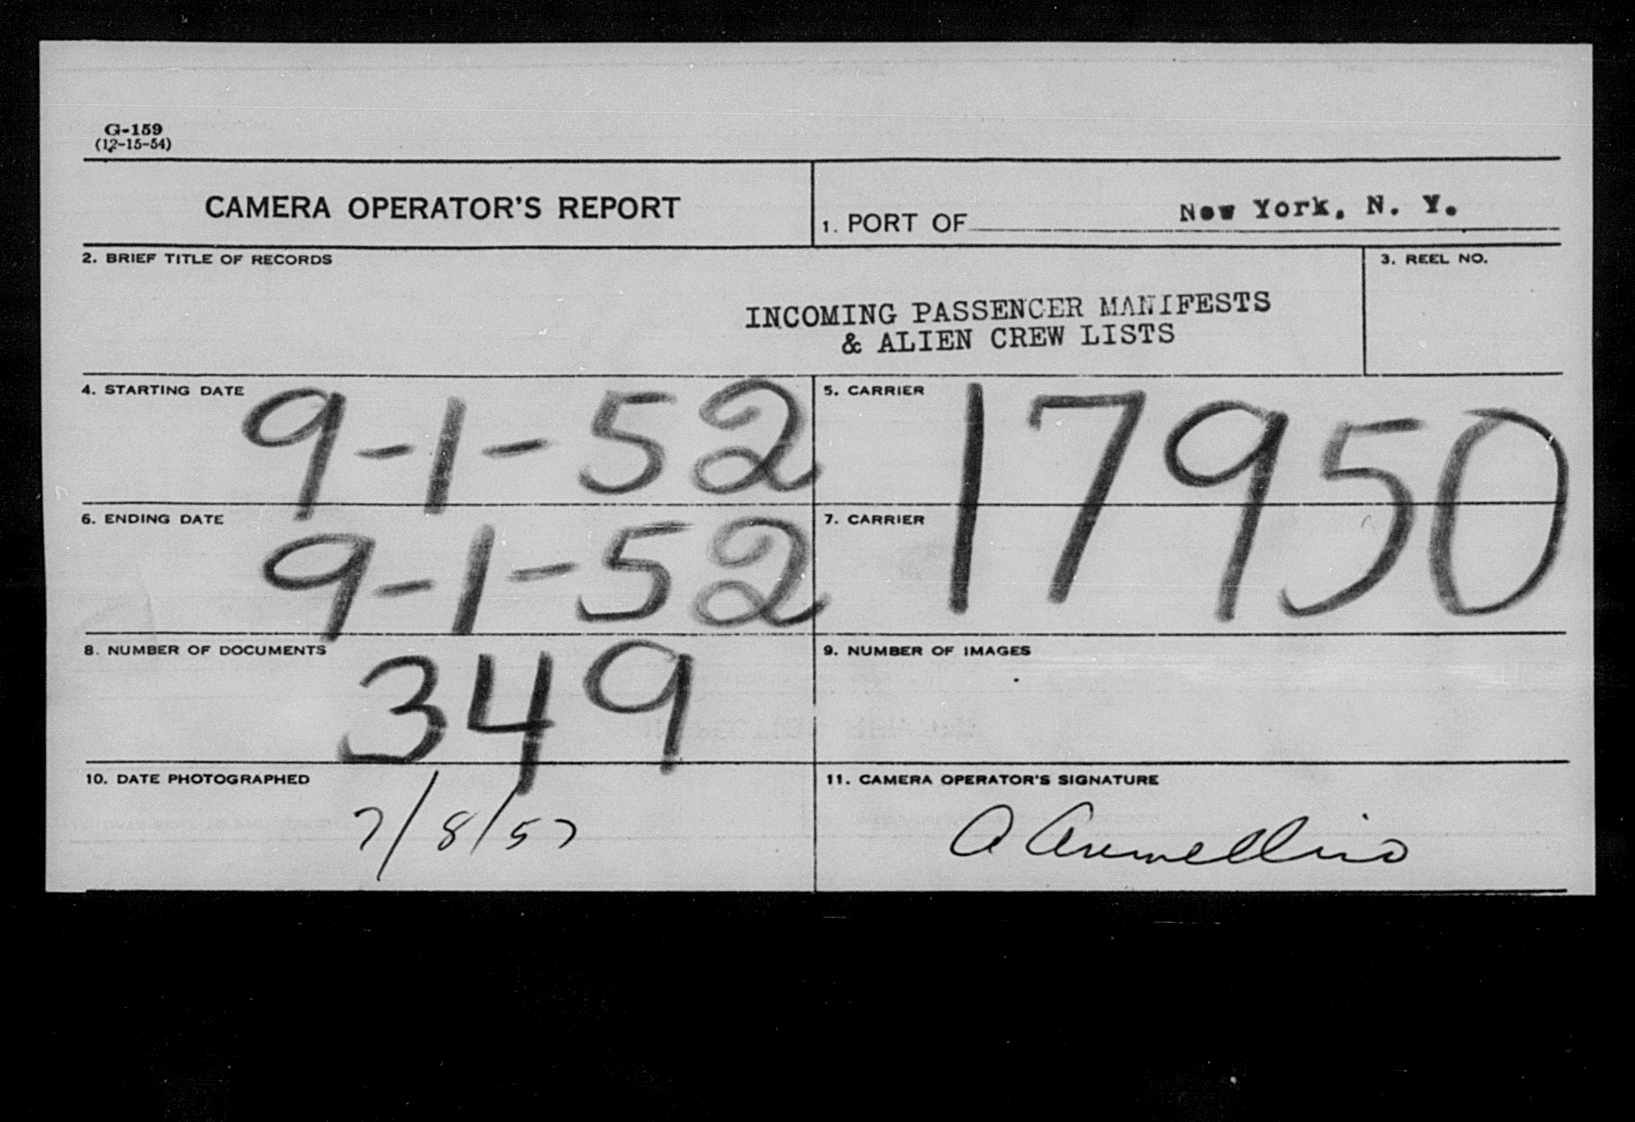 G-159
(12-15-54)
CAMERA OPERATOR'S REPORT
1. PORT OF New York, N. Y.
2. BRIEF TITLE OF RECORDS
3. REEL NO.
INCOMING PASSENGER MANIFESTS
& ALIEN CREW LISTS
4. STARTING DATE
9-1-52
5. CARRIER
17950
6. ENDING DATE
9-1-52
7. CARRIER
8. NUMBER OF DOCUMENTS
349
9. NUMBER OF IMAGES
10. DATE PHOTOGRAPHED
7/8/57
11. CAMERA OPERATOR'S SIGNATURE
A Armellino